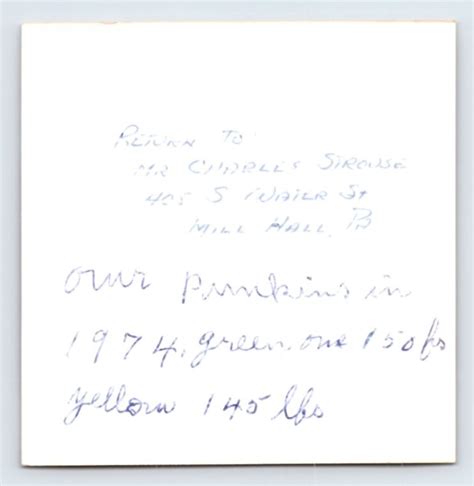 RETURN TO
MR CHARLES STROUSE
405 S WATER St
MILL HALL, PA
our punkins in
1974, green one 150 lbs
yellow 145 lbs